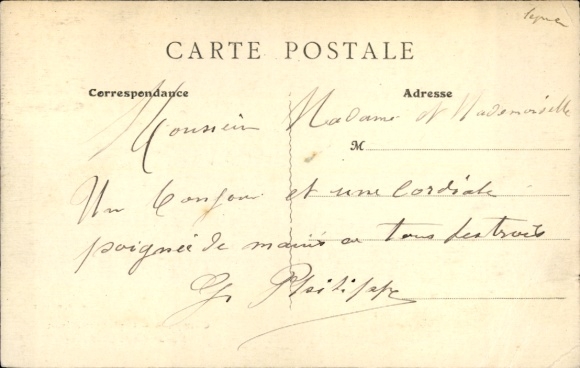 CARTE POSTALE
Correspondance
Adresse
M
Monsieur Madame et Mademoiselle
Un bonjour et une Cordiale
poignée de mains a tous les trois
G. Philippe